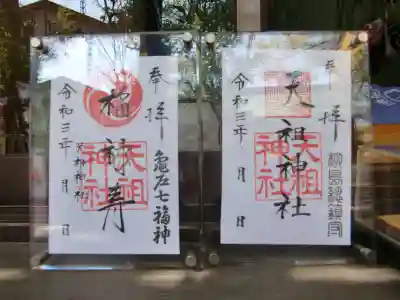 奉拝
亀戸七福神
福禄寿
天祖神社
天祖神社
令和三年 月 日
奉拝
柳島総鎮守
天祖神社
天祖神社
令和三年 月 日